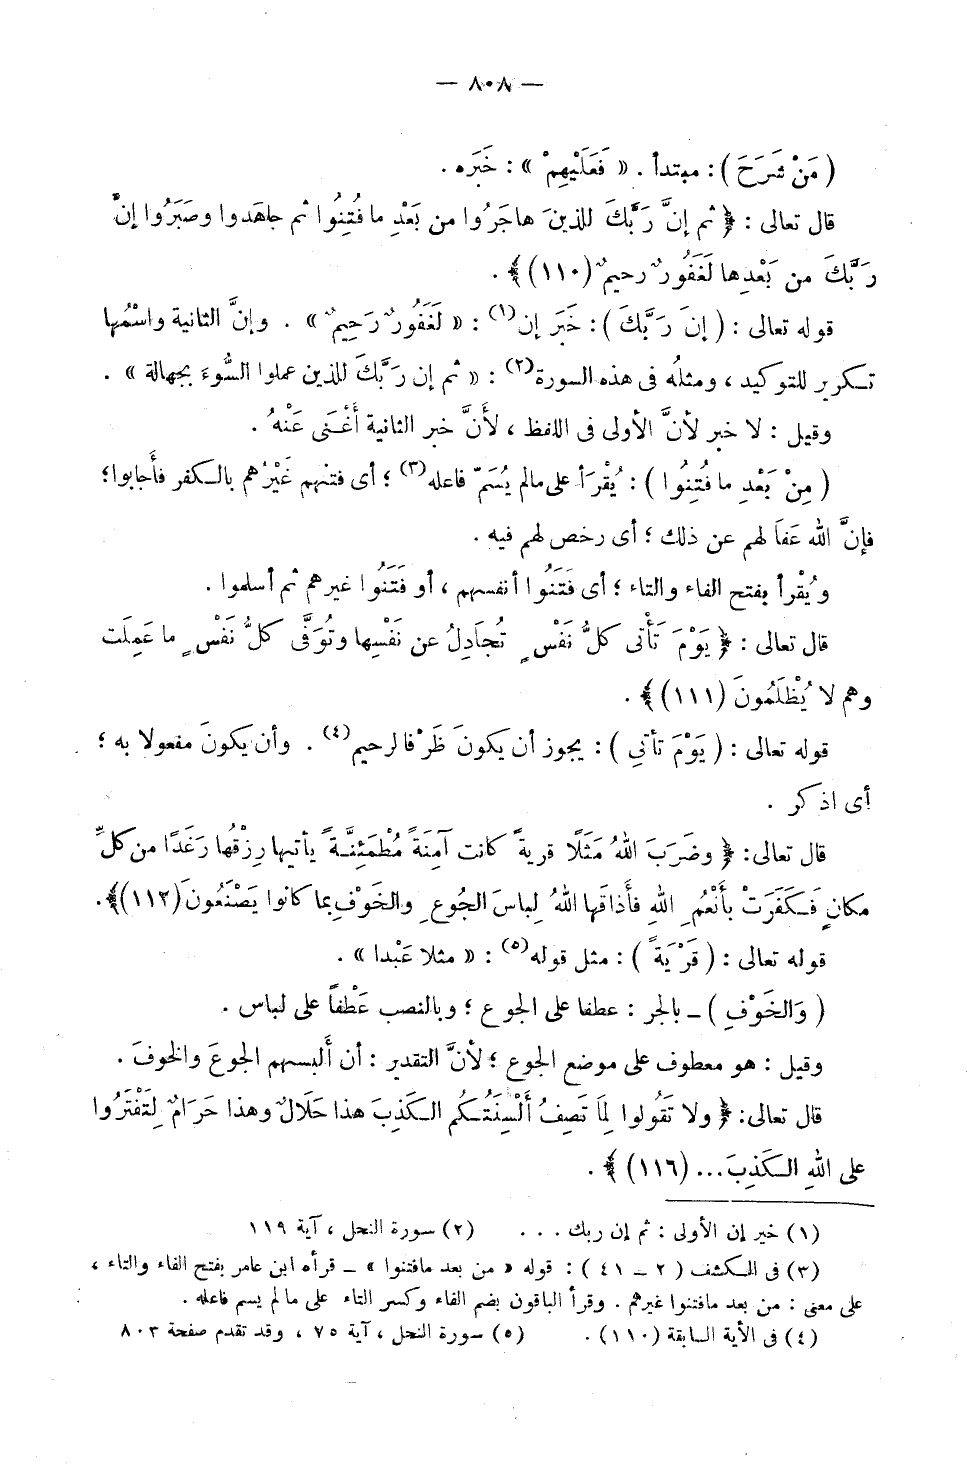 — ٨٠٨ —
( مَنْ شَرَحَ ) : مبتدأ . « فَعَلَيْهِمْ » : خَبَره .
قال تعالى : ﴿ ثم إنَّ رَبَّكَ للذينَ هاجَرُوا من بَعْدِ ما فُتِنُوا ثم جاهَدوا وصَبَرُوا إنَّ
رَبَّكَ من بَعْدِها لَغَفُورٌ رحيمٌ (١١٠) ﴾ .
قوله تعالى : ( إنَ رَبَّكَ ) : خَبَر إن(١) : « لَغَفُورٌ رَحِيمٌ » . وإنَّ الثانية واسْمُها
تكرير للتوكيد ، ومثلُه فى هذه السورة(٢) : « ثم إن رَبَّكَ للذين عملوا السُّوءَ بجهالة » .
وقيل : لا خبر لأنَّ الأولى فى اللفظ ، لأَنَّ خبر الثانية أَغْنَى عَنْهُ .
( مِنْ بَعْدِ ما فُتِنُوا ) : يُقْرَأ على مالم يُسَمّ فاعله(٣) ؛ أى فتنهم غَيْرُهم بالكفر فأَجابوا؛
فإنَّ الله عَفاَ لهم عن ذلك ؛ أى رخص لهم فيه .
ويُقْرأ بفتح الفاء والتاء ؛ أى فَتَنُوا أنفسهم ، أو فَتَنُوا غيرهم ثم أسلموا .
قال تعالى : ﴿ يَوْمَ تَأْتى كلُّ نَفْسٍ تُجَادِلُ عن نَفْسِها وتُوَفَّى كلُّ نَفْسٍ ما عَمِلَت
وهم لا يُظْلَمُونَ (١١١) ﴾ .
قوله تعالى : ( يَوْمَ تأتى ) : يجوز أن يكونَ ظَرْفا لرحيم(٤) . وأن يكونَ مفعولا به ؛
أى اذكر .
قال تعالى: ﴿ وضَرَبَ اللهُ مَثَلًا قريةً كانت آمِنَةً مُطْمَئِنَّةً يأتيها رِزْقُها رَغَدًا من كلِّ
مكانٍ فَكَفَرَتْ بأَنْعُمِ اللهِ فأَذاقَها اللهُ لِباسَ الجُوعِ والخَوْفِ بما كانوا يَصْنَعُونَ (١١٢)﴾.
قوله تعالى : ( قَرْيَةً ) : مثل قوله(٥) : « مثلا عَبْدا » .
( وَالخَوْفِ ) ـ بالجر : عطفا على الجوع ؛ وبالنصب عَطْفاً على لباس .
وقيل : هو معطوف على موضع الجوع ؛ لأنَّ التقدير : أن أَلبسهم الجوعَ والخوفَ .
قال تعالى: ﴿ ولا تَقُولوا لِمَا تَصِفُ أَلْسِنَتُكُم الكَذِبَ هذا حَلَالٌ وهذا حَرَامٌ لِتَفْتَرُوا
على اللهِ الكَذِبَ... (١١٦) ﴾ .
(١) خبر إن الأولى : ثم إن ربك . . . (٢) سورة النحل ، آية ١١٩
(٣) فى الكشف ( ٢ ـ ٤١ ) : قوله « من بعد مافتنوا » ـ قرأه ابن عامر بفتح الفاء والتاء ،
على معنى : من بعد مافتنوا غيرهم . وقرأ الباقون بضم الفاء وكسر التاء على ما لم يسم فاعله .
(٤) فى الأية السابقة (١١٠) . (٥) سورة النحل ، آية ٧٥ ، وقد تقدم صفحة ٨٠٣